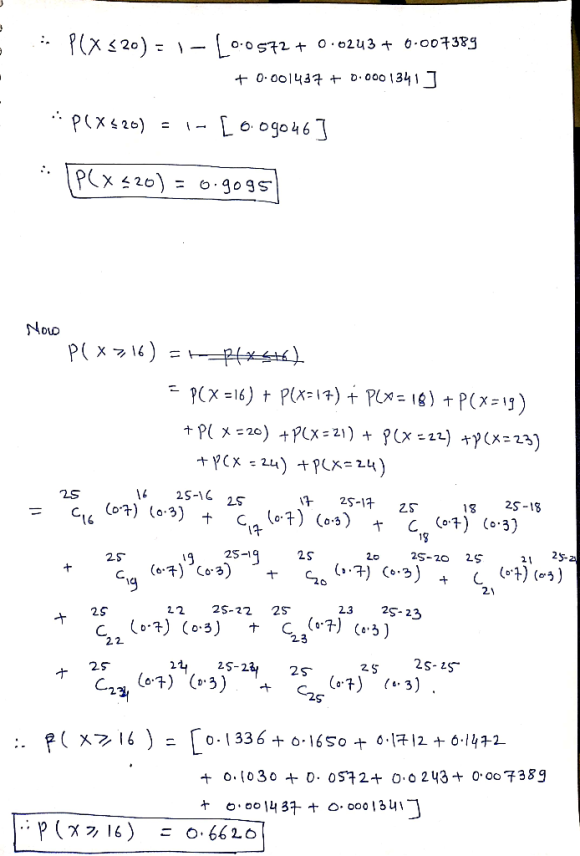 ∴ P(X ≤ 20) = 1 – [0.0572 + 0.0243 + 0.007389
+ 0.001437 + 0.0001341]
∴ P(X ≤ 20) = 1 – [0.09046]
∴ P(X ≤ 20) = 0.9095
Now
P(X ≥ 16) = 1 – P(X ≤ 16)
= P(X = 16) + P(X = 17) + P(X = 18) + P(X = 19)
+ P(X = 20) + P(X = 21) + P(X = 22) + P(X = 23)
+ P(X = 24) + P(X = 24)
= ²⁵C₁₆ (0.7)¹⁶ (0.3)²⁵⁻¹⁶ + ²⁵C₁₇ (0.7)¹⁷ (0.3)²⁵⁻¹⁷ + ²⁵C₁₈ (0.7)¹⁸ (0.3)²⁵⁻¹⁸
+ ²⁵C₁₉ (0.7)¹⁹ (0.3)²⁵⁻¹⁹ + ²⁵C₂₀ (0.7)²⁰ (0.3)²⁵⁻²⁰ + ²⁵C₂₁ (0.7)²¹ (0.3)²⁵⁻²
+ ²⁵C₂₂ (0.7)²² (0.3)²⁵⁻²² + ²⁵C₂₃ (0.7)²³ (0.3)²⁵⁻²³
+ ²⁵C₂₄ (0.7)²⁴ (0.3)²⁵⁻²⁴ + ²⁵C₂₅ (0.7)²⁵ (0.3)²⁵⁻²⁵.
∴ P(X ≥ 16) = [0.1336 + 0.1650 + 0.1712 + 0.1472
+ 0.1030 + 0.0572 + 0.0243 + 0.007389
+ 0.001437 + 0.0001341]
∴ P(X ≥ 16) = 0.6620